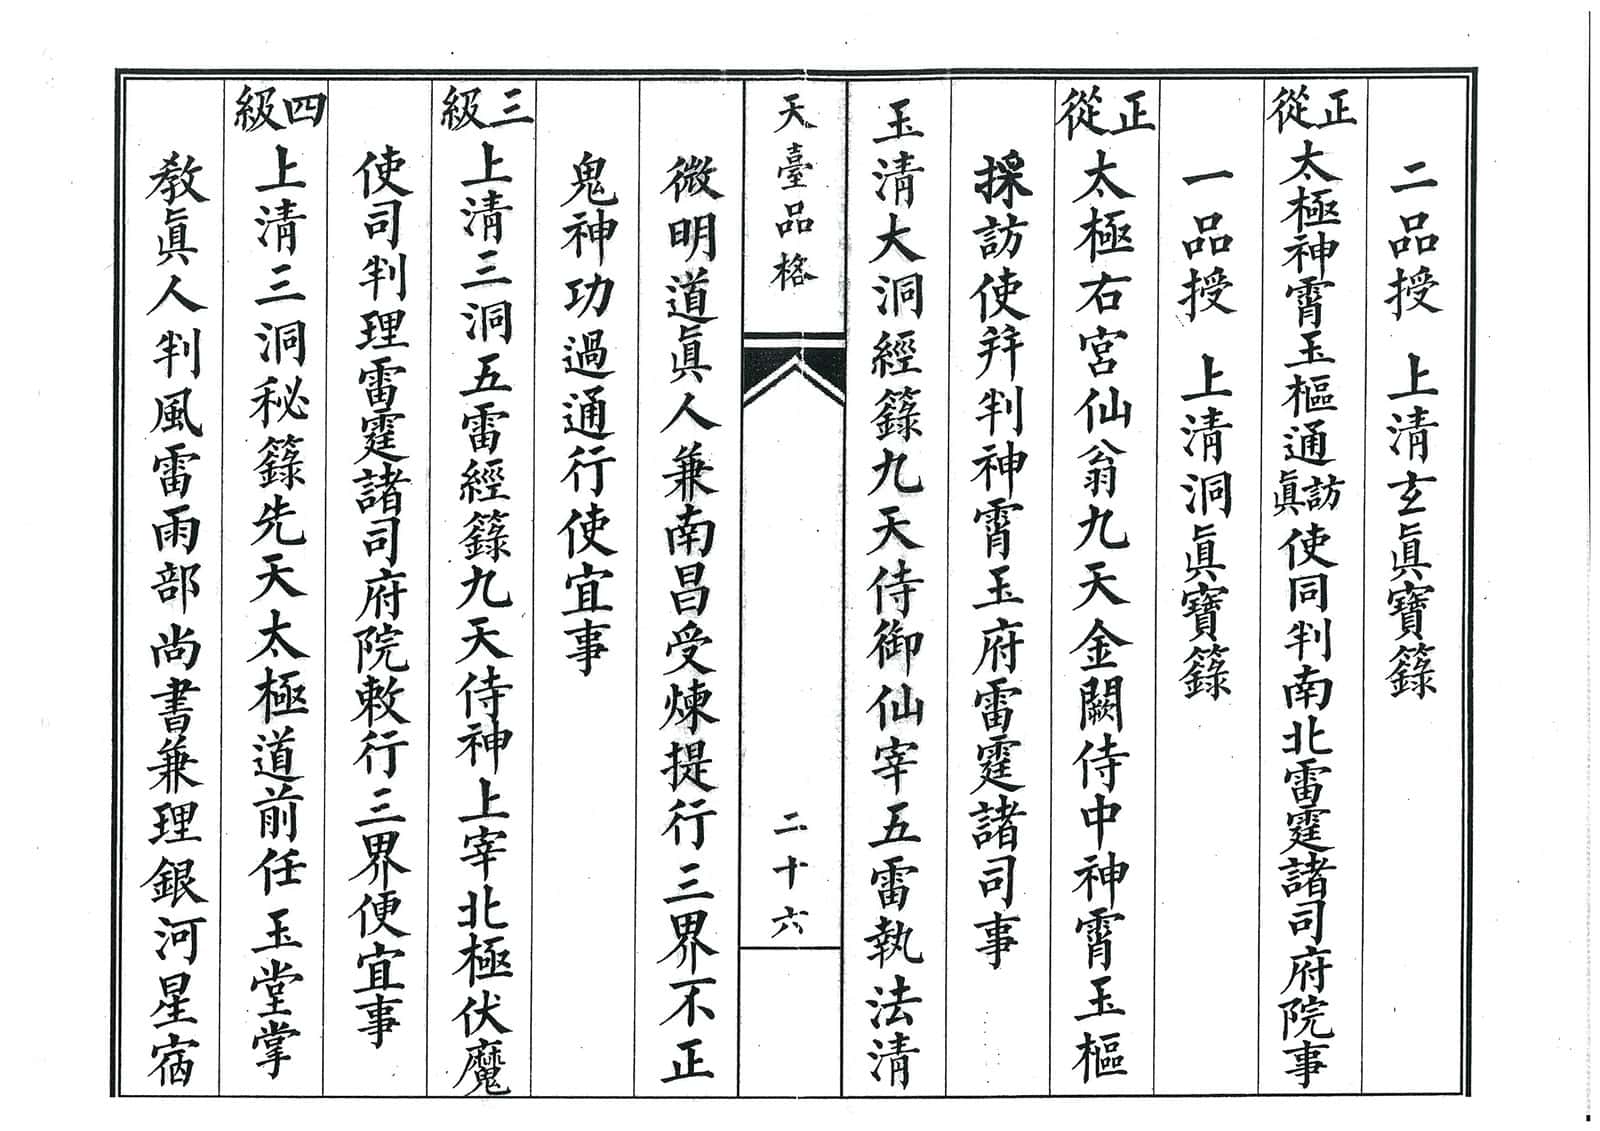 二品授　上清玄眞寶籙
正從太極神霄玉樞通訪眞使同判南北雷霆諸司府院事
一品授　上清洞眞寶籙
正從太極右宮仙翁九天金闕侍中神霄玉樞
採訪使判神霄玉府雷霆諸司事
玉清大洞經籙九天侍御仙宰五雷執法清
天臺品格
二十六
微明道眞人兼南昌受煉提行三界不正
鬼神功過通行使宜事
三級上清三洞五雷經籙九天侍神上宰北極伏魔
使司判理雷霆諸司府院敕行三界便宜事
四級上清三洞秘籙先天太極道前任玉堂掌
教眞人判風雷雨部尚書兼理銀河星宿